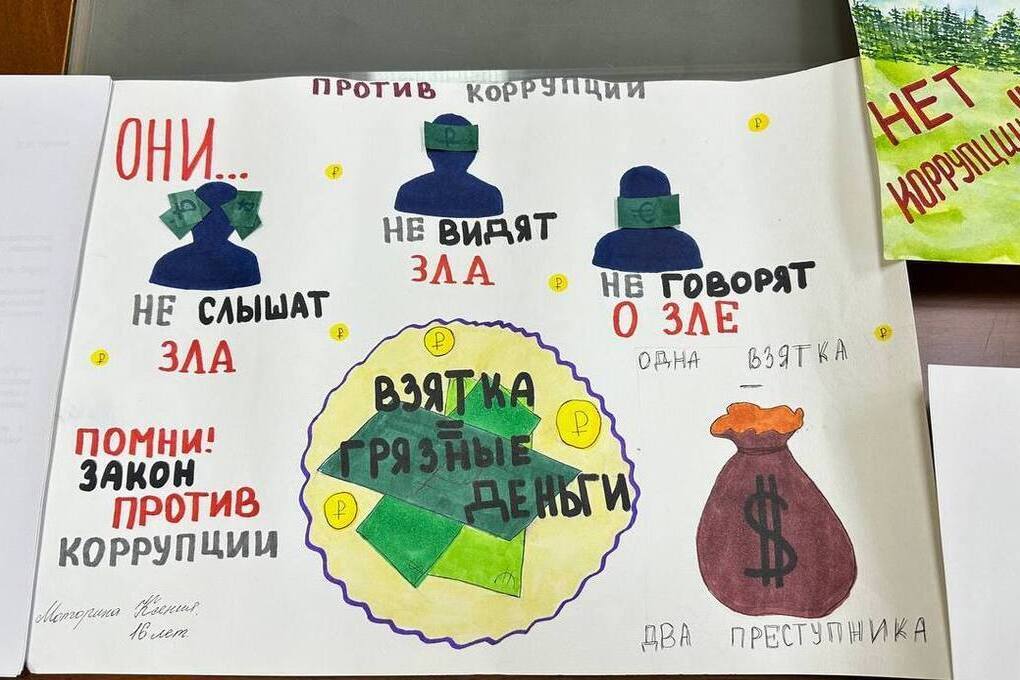 ПРОТИВ КОРРУПЦИИ
ОНИ...
НЕ СЛЫШАТ
ЗЛА
НЕ ВИДЯТ
ЗЛА
НЕ ГОВОРЯТ
О ЗЛЕ
ВЗЯТКА
=
ГРЯЗНЫЕ
ДЕНЬГИ
ПОМНИ!
ЗАКОН
ПРОТИВ
КОРРУПЦИИ
Моторина Ксения.
16 лет
ОДНА ВЗЯТКА
–
$
ДВА ПРЕСТУПНИКА
НЕТ
КОРРУПЦИИ